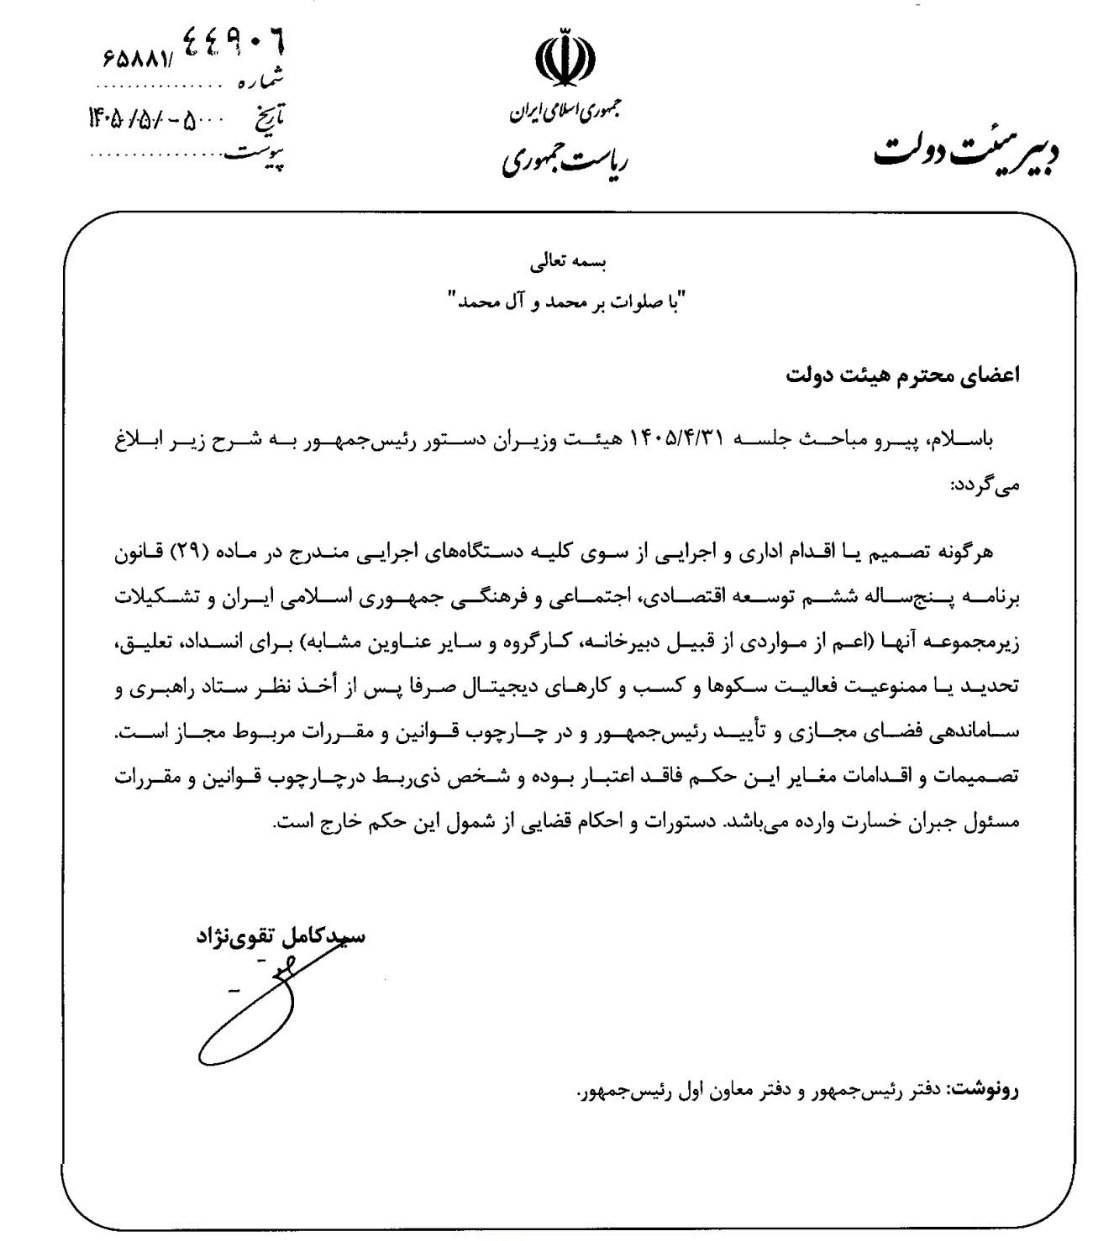 ۶۵۸۸۱/ ۴۴۹۰۶
شماره
تاریخ
پیوست
جمهوری اسلامی ایران
ریاست جمهوری
دبیر هیئت دولت
بسمه تعالی
"با صلوات بر محمد و آل محمد"
اعضای محترم هیئت دولت
باسلام، پیرو مباحث جلسه ۱۴۰۵/۴/۳۱ هیئت وزیران دستور رئیس‌جمهور به شرح زیر ابلاغ
می‌گردد:
هرگونه تصمیم یا اقدام اداری و اجرایی از سوی کلیه دستگاه‌های اجرایی مندرج در ماده (۲۹) قانون
برنامه پنج‌ساله ششم توسعه اقتصادی، اجتماعی و فرهنگی جمهوری اسلامی ایران و تشکیلات
زیرمجموعه آنها (اعم از مواردی از قبیل دبیرخانه، کارگروه و سایر عناوین مشابه) برای انسداد، تعلیق،
تحدید یا ممنوعیت فعالیت سکوها و کسب و کارهای دیجیتال صرفا پس از أخذ نظر ستاد راهبری و
ساماندهی فضای مجازی و تأیید رئیس‌جمهور و در چارچوب قوانین و مقررات مربوط مجاز است.
تصمیمات و اقدامات مغایر این حکم فاقد اعتبار بوده و شخص ذی‌ربط درچارچوب قوانین و مقررات
مسئول جبران خسارت وارده می‌باشد. دستورات و احکام قضایی از شمول این حکم خارج است.
سیدکامل تقوی‌نژاد
رونوشت: دفتر رئیس‌جمهور و دفتر معاون اول رئیس‌جمهور.